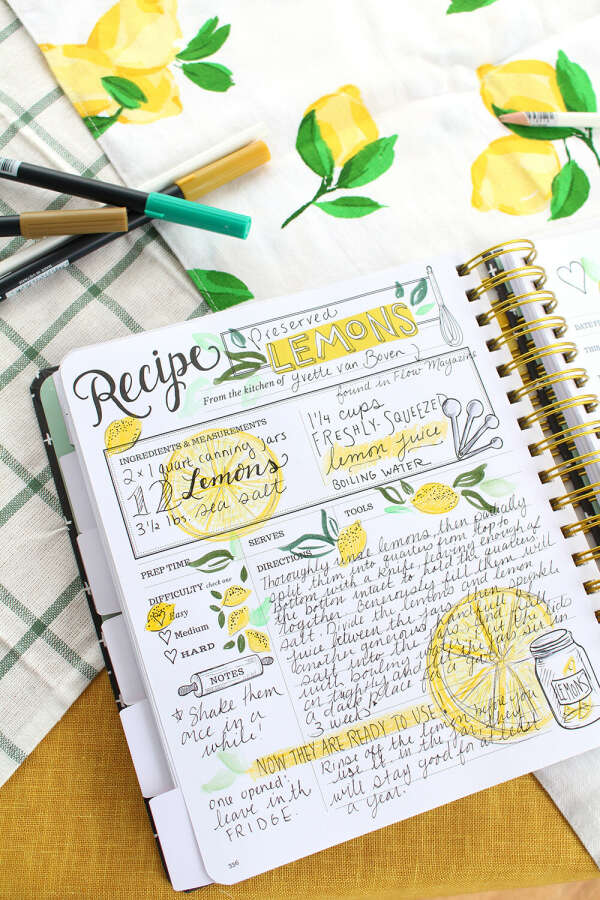 Recipe
Preserved
LEMONS
From the kitchen of Yvette van Boven
found in Flow Magazine
INGREDIENTS & MEASUREMENTS
2 x 1 quart canning jars
12 Lemons
3 1/2 lbs. sea salt
1 1/4 cups
FRESHLY-SQUEEZED
lemon juice
BOILING WATER
PREP TIME
SERVES
TOOLS
DIFFICULTY check one
Easy
Medium
HARD
NOTES
* Shake them
once in a
while!
one opened:
leave in th
FRIDGE.
DIRECTIONS
Thoroughly rinse lemons, then partially
split them into quarters from top to
bottom with a knife, leaving enough of
the bottom intact to hold the quarters
together. Generously fill them with
salt. Divide the lemons and lemon
juice between the jars, then sprinkle
another generous
salt into the jars and fill
with boiling
on tightly and let the jars sit in
a dark place for a
3 weeks
NOW THEY ARE READY TO USE
Rinse off the lemon before you
use it. In the jar, they
will stay good for at least
a year.
LEMONS
DATE
336